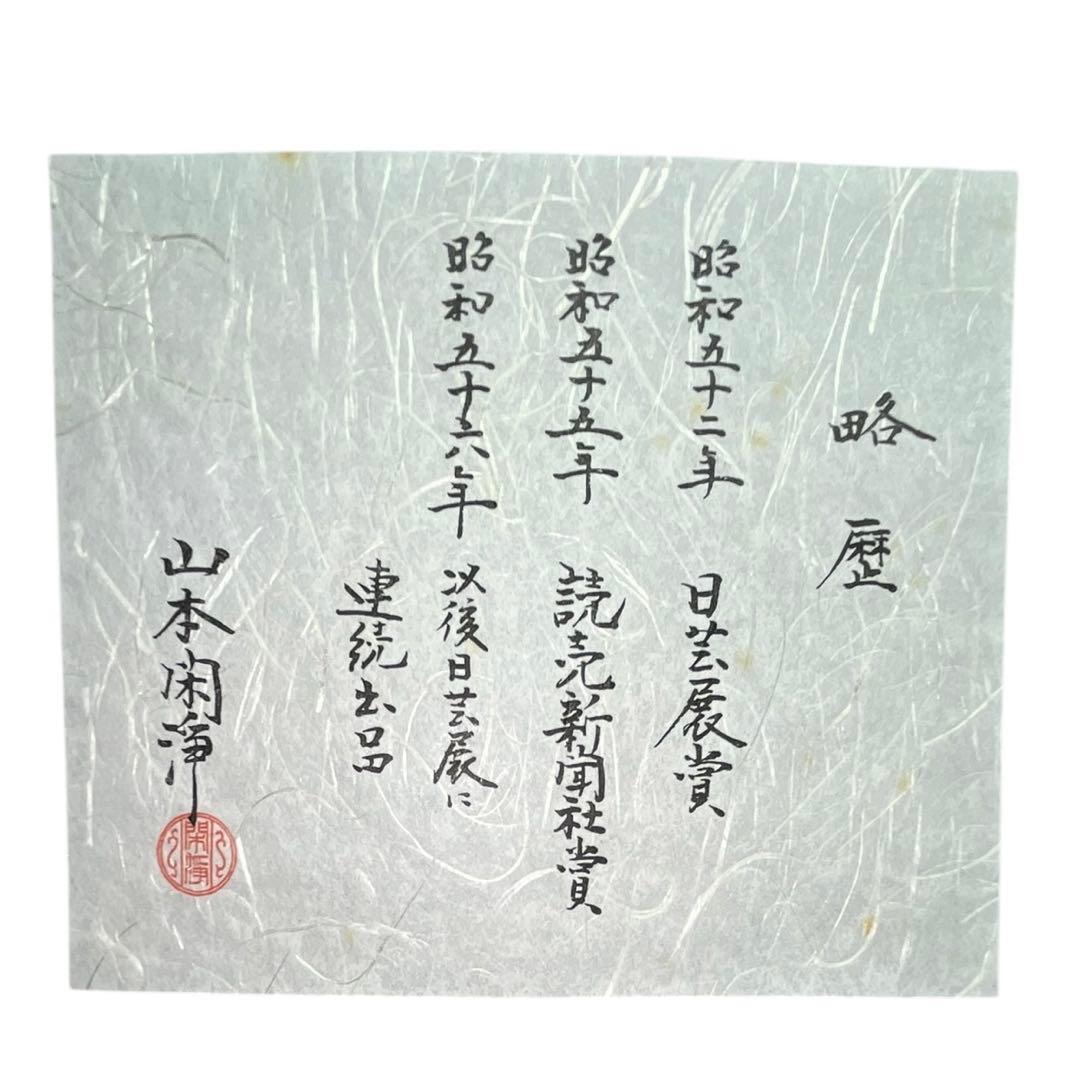 略歴
昭和五十二年 日芸展賞
昭和五十五年 読売新聞社賞
昭和五十六年 以後日芸展に
連続出品
山本閑浄
閑浄